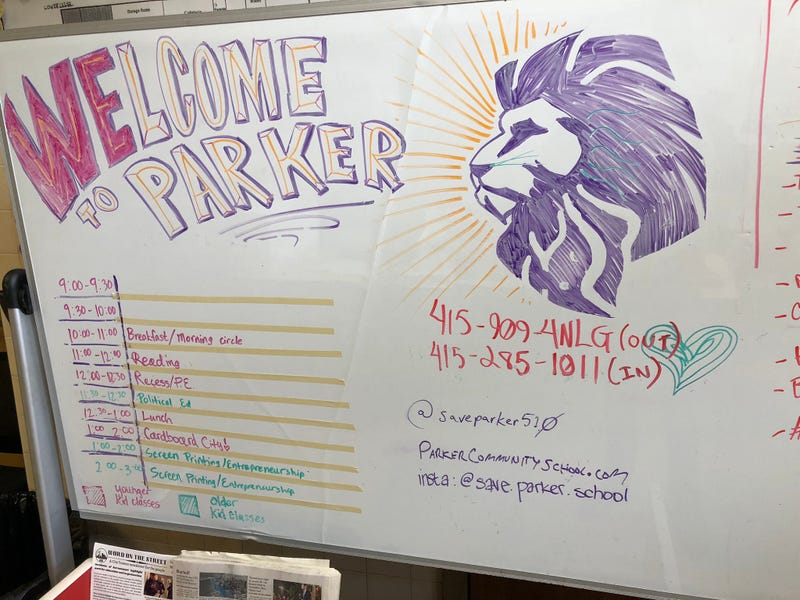 WELCOME
TO PARKER
9:00-9:30
9:30-10:00
10:00-11:00 Breakfast/Morning circle
11:00-12:00 Reading
12:00-12:30 Recess/PE
11:30-12:30 Political Ed
12:30-1:00 Lunch
1:00 2:00 Cardboard City!
1:00-2:00 Screen Printing/Entrepreneurship
2:00-3:00 Screen Printing/Entrepreneurship
younger
kid classes
Older
kid classes
415-909-4NLG (OUT)
415-285-1011 (IN)
@saveparker510
PARKERCOMMUNITYSCHOOL.COM
insta: @save.parker.school
WORD ON THE STREET